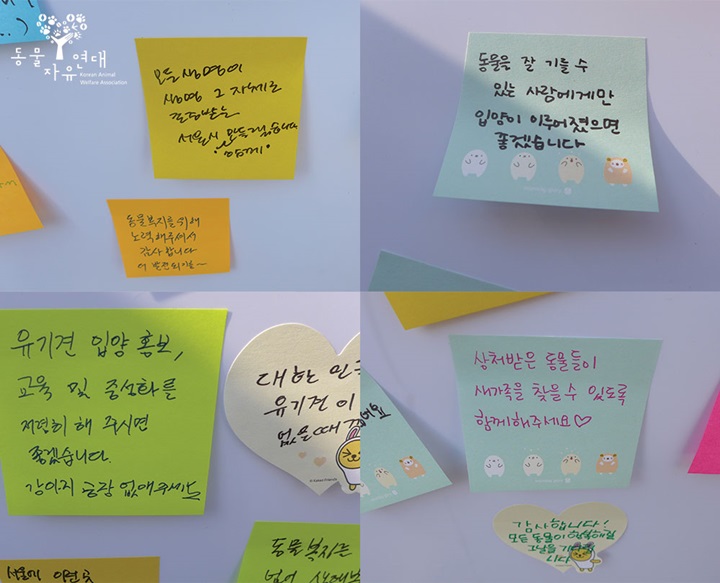 동물
자유연대
Korean Animal
Welfare Association
모든 생명이
생명 그 자체로
존중받는
서울시 만들겠습니다
함께
동물복지를 위해
노력해주셔서
감사합니다
더 발전되길~
동물을 잘 기를 수
있는 사람에게만
입양이 이루어졌으면
좋겠습니다
유기견 입양 홍보,
교육 및 중성화를
저렴히 해 주시면
좋겠습니다.
강아지 공장 없애주세요
대한민
유기견이
없을때까
상처받은 동물들이
새가족을 찾을 수 있도록
함께해주세요♡
감사합니다!
모든 동물이 행복해질
그날을 기다립
니다
동물복지는